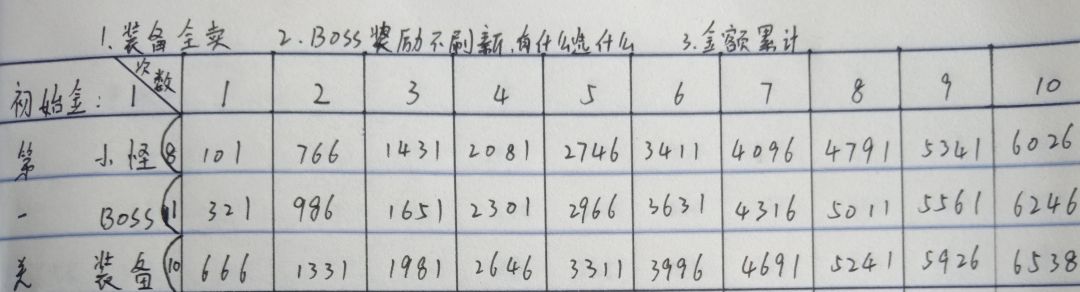 1.装备全卖 2.BOSS奖励不刷新,有什么选什么 3.金额累计
初始金:1 次数 1 2 3 4 5 6 7 8 9 10
第 小怪(8 101 766 1431 2081 2746 3411 4096 4791 5341 6026
一 BOSS(11 321 986 1651 2301 2966 3631 4316 5011 5561 6246
关 装备(10 666 1331 1981 2646 3311 3996 4691 5241 5926 6538